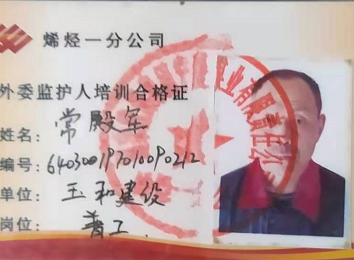 烯烃一分公司
外委监护人培训合格证
姓名: 常殿军
编号: 640300197010090212
单位: 玉和建设
岗位: 普工